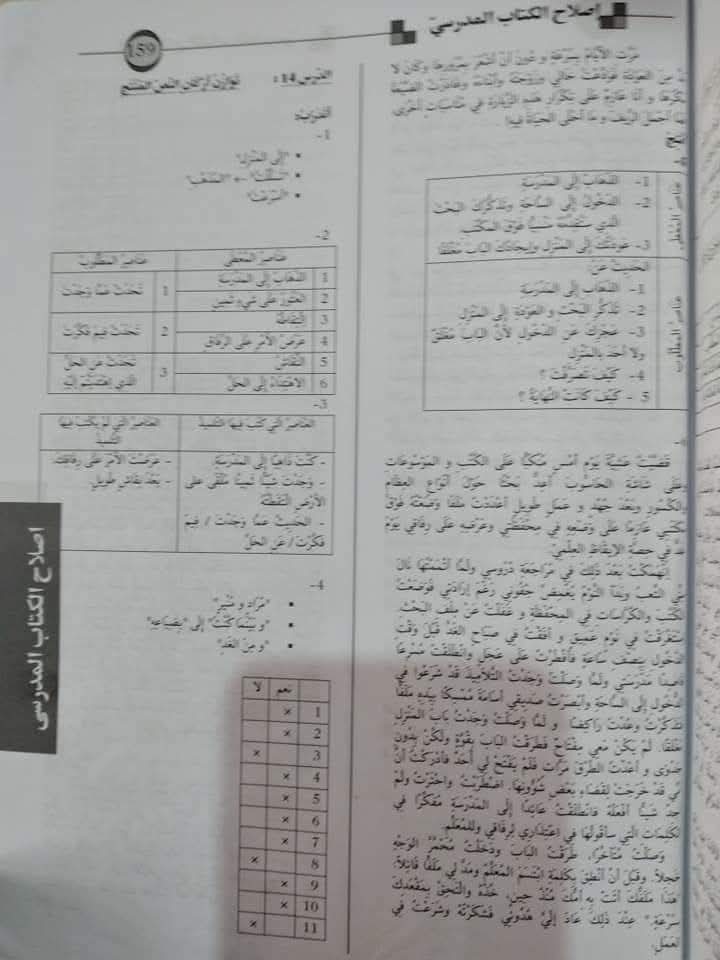 اصلاح الكتاب المدرسيّ
159
مَرَّت الأيّامُ بِسُرْعَةٍ و دُونَ أنْ أشْعُرَ بِمُرُورِهَا وكَانَ لا
مِنَ العَوْدَةِ فَوَدَّعْتُ خَالِي وَزَوْجَتَهُ وأبْنَاءَهُ وَغَادَرْتُ الضَّيْعَةَ
و أنَا عَازِمٌ عَلَى تَكْرَارِ هَذِهِ الزِّيَارَةِ فِي مُنَاسَبَاتٍ أخْرَى.
أجْمَلَ الرِّيفَ و مَا أحْلَى الحَيَاةَ فِيهِ!
عناصر المعطى
1- الذَّهَابُ إلَى المَدْرَسَةِ
2- الدُّخُولُ إلَى السَّاحَةِ وَتَذَكُّرُكَ البَحْثَ
الَّذِي سَتُقَدِّمُهُ مَنْسِيًّا فَوْقَ المَكْتَبِ.
3- عَوْدَتُكَ إلَى المَنْزِلِ وإيجَادُكَ البَابَ مُغْلَقًا
عناصر المطلوب
الحَدِيثُ عَنْ:
1- الذَّهَابِ إلَى المَدْرَسَةِ
2- تَذَكُّرِ البَحْثِ و العَوْدَةِ إلَى المَنْزِلِ
3- عَجْزِكَ عَنِ الدُّخُولِ لأنَّ البَابَ مُغْلَقٌ
ولا أحَدَ بِالمَنْزِلِ
4- كَيْفَ تَصَرَّفْتَ ؟
5 - كَيْفَ كَانَتْ النِّهَايَةُ ؟
قَضَّيْتُ عَشِيَّةَ يَوْمِ أمْسِ مُنْكَبًّا عَلَى الكُتُبِ و المَوْسُوعَاتِ
وعَلَى شَاشَةِ الحَاسُوبِ أعِدُّ بَحْثًا حَوْلَ أنْوَاعِ العِظَامِ
والكُسُورِ وبَعْدَ جُهْدٍ و عَمَلٍ طَوِيلٍ أعْدَدْتُ مَلَفًّا وَضَعْتُهُ فَوْقَ
مَكْتَبِي عَازِمًا عَلَى وَضْعِهِ فِي مِحْفَظَتِي وعَرْضِهِ عَلَى رِفَاقِي يَوْمَ
فِي حِصَّةِ الإيقَاظِ العِلْمِيِّ.
انْهَمَكْتُ بَعْدَ ذَلِكَ فِي مُرَاجَعَةِ دُرُوسِي ولَمَّا أتْمَمْتُهَا نَالَ
مِنِّي التَّعَبُ وبَدَأ النَّوْمُ يُغْمِضُ جُفُونِي رَغْمَ إرَادَتِي فَوَضَعْتُ
الكُتُبَ والكُرَّاسَاتِ فِي المِحْفَظَةِ و غَفَلْتُ عَنْ مَلَفِّ البَحْثِ.
اسْتَغْرَقْتُ فِي نَوْمٍ عَمِيقٍ و أفَقْتُ فِي صَبَاحِ الغَدِ قَبْلَ وَقْتِ
الدُّخُولِ بِنِصْفِ سَاعَةٍ فَأفْطَرْتُ عَلَى عَجَلٍ وانْطَلَقْتُ مُسْرِعًا
قَاصِدًا مَدْرَسَتِي ولَمَّا وَصَلْتُ وَجَدْتُ التَّلامِيذَ قَدْ شَرَعُوا فِي
الدُّخُولِ إلَى السَّاحَةِ وأبْصَرْتُ صَدِيقِي أسَامَةَ مُمْسِكًا بِيَدِهِ مَلَفًّا
فَتَذَكَّرْتُ وعُدْتُ رَاكِضًا و لَمَّا وَصَلْتُ وَجَدْتُ بَابَ المَنْزِلِ
مُغْلَقًا. لَمْ يَكُنْ مَعِي مِفْتَاحٌ فَطَرَقْتُ البَابَ بِقُوَّةٍ ولَكِنْ بِدُونِ
جَدْوَى و أعَدْتُ الطَّرْقَ مَرَّاتٍ فَلَمْ يَفْتَحْ لِي أحَدٌ فَأدْرَكْتُ أنَّ
أمِّي قَدْ خَرَجَتْ لِقَضَاءِ بَعْضِ شُؤُونِهَا. اضْطَرَبْتُ واحْتَرْتُ ولَمْ
أجِدْ شَيْئًا أفْعَلُهُ فَانْطَلَقْتُ عَائِدًا إلَى المَدْرَسَةِ مُفَكِّرًا فِي
الكَلِمَاتِ الَّتِي سَأقُولُهَا فِي اعْتِذَارِي لِرِفَاقِي ولِلْمُعَلِّمِ.
وَصَلْتُ مُتَأخِّرًا، طَرَقْتُ البَابَ ودَخَلْتُ مُحْمَرَّ الوَجْهِ
خَجَلاً. وقَبْلَ أنْ أنْطِقَ بِكَلِمَةٍ ابْتَسَمَ المُعَلِّمُ ومَدَّ لِي مَلَفًّا قَائِلاً:
"هَذَا مَلَفُّكَ أتَتْ بِهِ أمُّكَ مُنْذُ حِينٍ، خُذْهُ والْتَحِقْ بِمَقْعَدِكَ
بِسُرْعَةٍ." عِنْدَ ذَلِكَ عَادَ إلَيَّ هُدُوئِي فَشَكَرْتُهُ وشَرَعْتُ فِي
العَمَلِ.
الدّرس 14: توازن أركان النصّ المنتج
أتدرّب:
1-
• "إلَى المَنْزِلِ"
• "تَسَلَّقْتُ" ← "المَذْهَب"
• "أسْرَعْتُ"
2-
عناصر المُعْطَى عناصر المَطْلُوب
1 الذَّهَابُ إلَى المَدْرَسَةِ
2 العُثُورُ عَلَى شَيْءٍ ثَمِينٍ
1 تَحَدَّثْ عَمَّا وَجَدْتَ
3 الْتِقَاطُهُ
4 عَرْضُ الأمْرِ عَلَى الرِّفَاقِ
2 تَحَدَّثْ فِيمَ فَكَّرْتَ
5 النِّقَاشُ
6 الاهْتِدَاءُ إلَى الحَلِّ
3 تَحَدَّثْ عَنِ الحَلِّ
الَّذِي اهْتَدَيْتُمْ إلَيْهِ
3-
العَنَاصِرُ الَّتِي كَتَبَ فِيهَا التِّلْمِيذُ العَنَاصِرُ الَّتِي لَمْ يَكْتُبْ فِيهَا
التِّلْمِيذُ
- كُنْتُ ذَاهِبًا إلَى المَدْرَسَةِ. - عَرَضْتُ الأمْرَ عَلَى رِفَاقِكَ.
- وَجَدْتُ شَيْئًا ثَمِينًا مُلْقًى عَلَى - بَعْدَ نِقَاشٍ طَوِيلٍ.
الأرْضِ الْتَقَطْتُهُ
- الحَدِيثُ عَمَّا وَجَدْتَ / فِيمَ
فَكَّرْتَ / عَنِ الحَلِّ
4-
• "مُرَاد و مُنِير"
• "و بَيْنَمَا كُنْتُ" إلى "بِضَيَاعِهِ"
• "و مِنَ الغَد"
نعم لا
1 ×
2 ×
3 ×
4 ×
5 ×
6 ×
7 ×
8 ×
9 ×
10 ×
11 ×
اصلاح الكتاب المدرسي